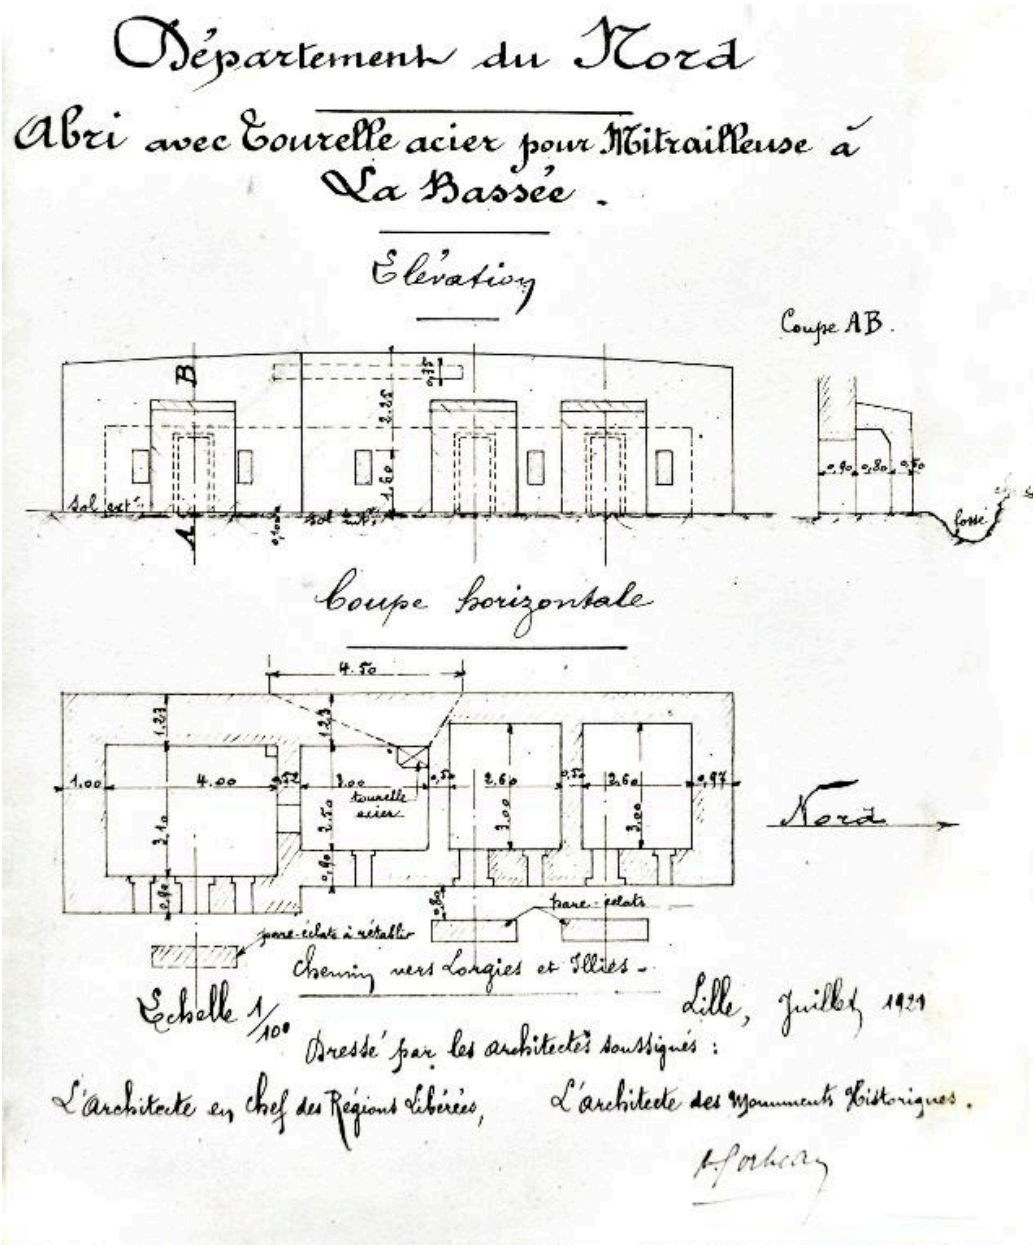 Département du Nord
Abri avec Tourelle acier pour Mitrailleuse à
La Bassée.
Elévation
Coupe AB.
B
0,35
2.25
1.60
0,90 0,80 0,50
sol extr
sol intr
A
fossé
Coupe horizontale
4.50
1.27 1.27
1.00 4.00 3.00 0,50 2.60 0,50 2.60 0,97
tourelle
acier
3.10 2.50 3.00 3.00
Nord
0,90 0,90 0,80
pare-éclats
pare-éclats à rétablir
Chemin vers Lorgies et Illies-
Echelle 1/100
Lille, Juillet 1921
Dressé par les architectes soussignés :
L'architecte en chef des Régions Libérées, L'architecte des Monuments Historiques.